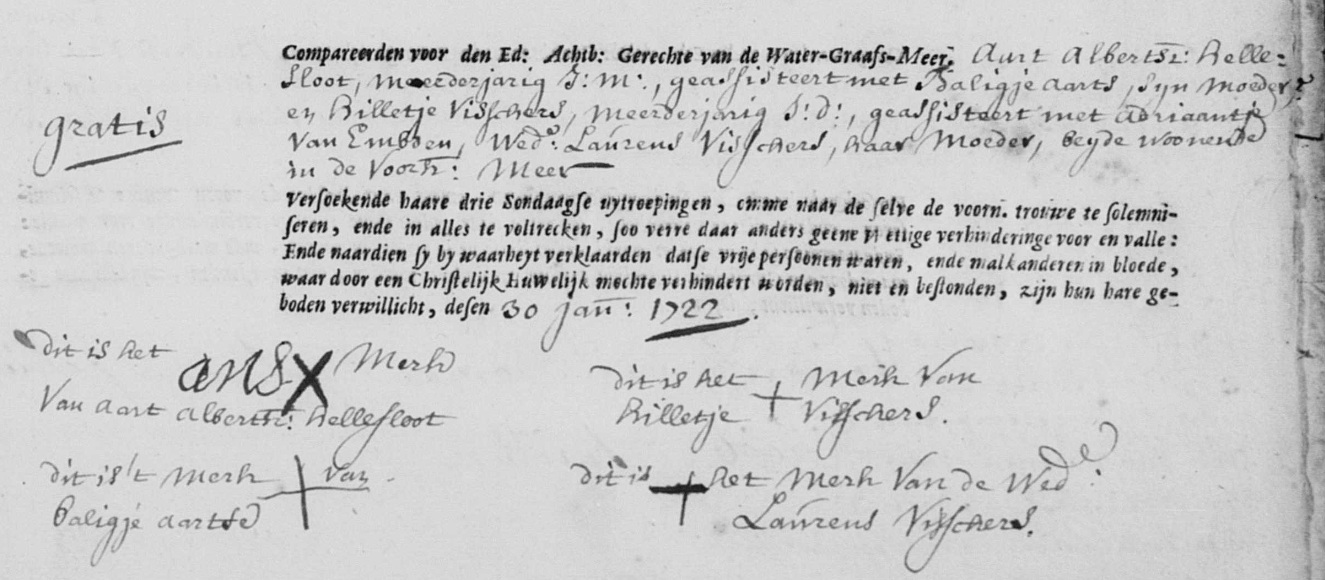 Compareerden voor den Ed: Achtb: Gerechte van de Water-Graafs-Meer, Aart Albertsz: helle-
sloot, meerderjarig J: M:, geassisteert met Baligje aarts, sijn moeder,
gratis
en hilletje Visschers, meerderjarig J: D:, geassisteert met adriaantje
van Embden, Wed.e Laurens Visschers, haar Moeder, beyde woonende
in de voorn: Meer
Versoekende haare drie Sondaagse uytroepingen, omme naar de selve de voorn. trouwe te solemni-
seren, ende in alles te voltrecken, soo verre daar anders geene wettige verhinderinge voor en valle:
Ende naardien sy by waarheyt verklaarden datse vrije persoonen waren, ende malkanderen in bloede,
waar door een Christelijk Huwelijk mochte verhindert worden, niet en bestonden, zijn hun hare ge-
boden verwillicht, desen 30 jann: 1722.
dit is het X Merk
Van aart albertsz: hellesloot
dit is het + Merk Van
hilletje Visschers.
dit is 't Merk + Van
baligje aartse
dit is + het Merk Van de Wed.e:
Laurens Visschers.